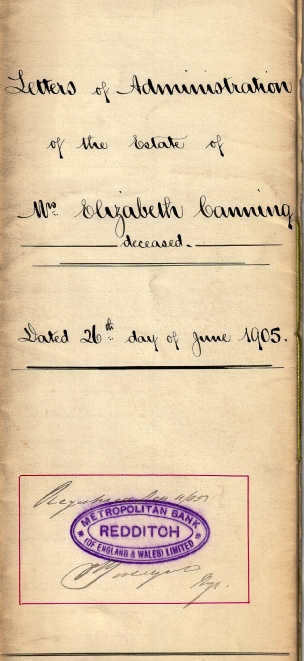 Letters of Administration
of the Estate of
Mrs Elizabeth Canning
deceased.
Dated 26th day of June 1905.
Registered
METROPOLITAN BANK
REDDITCH
(OF ENGLAND & WALES) LIMITED